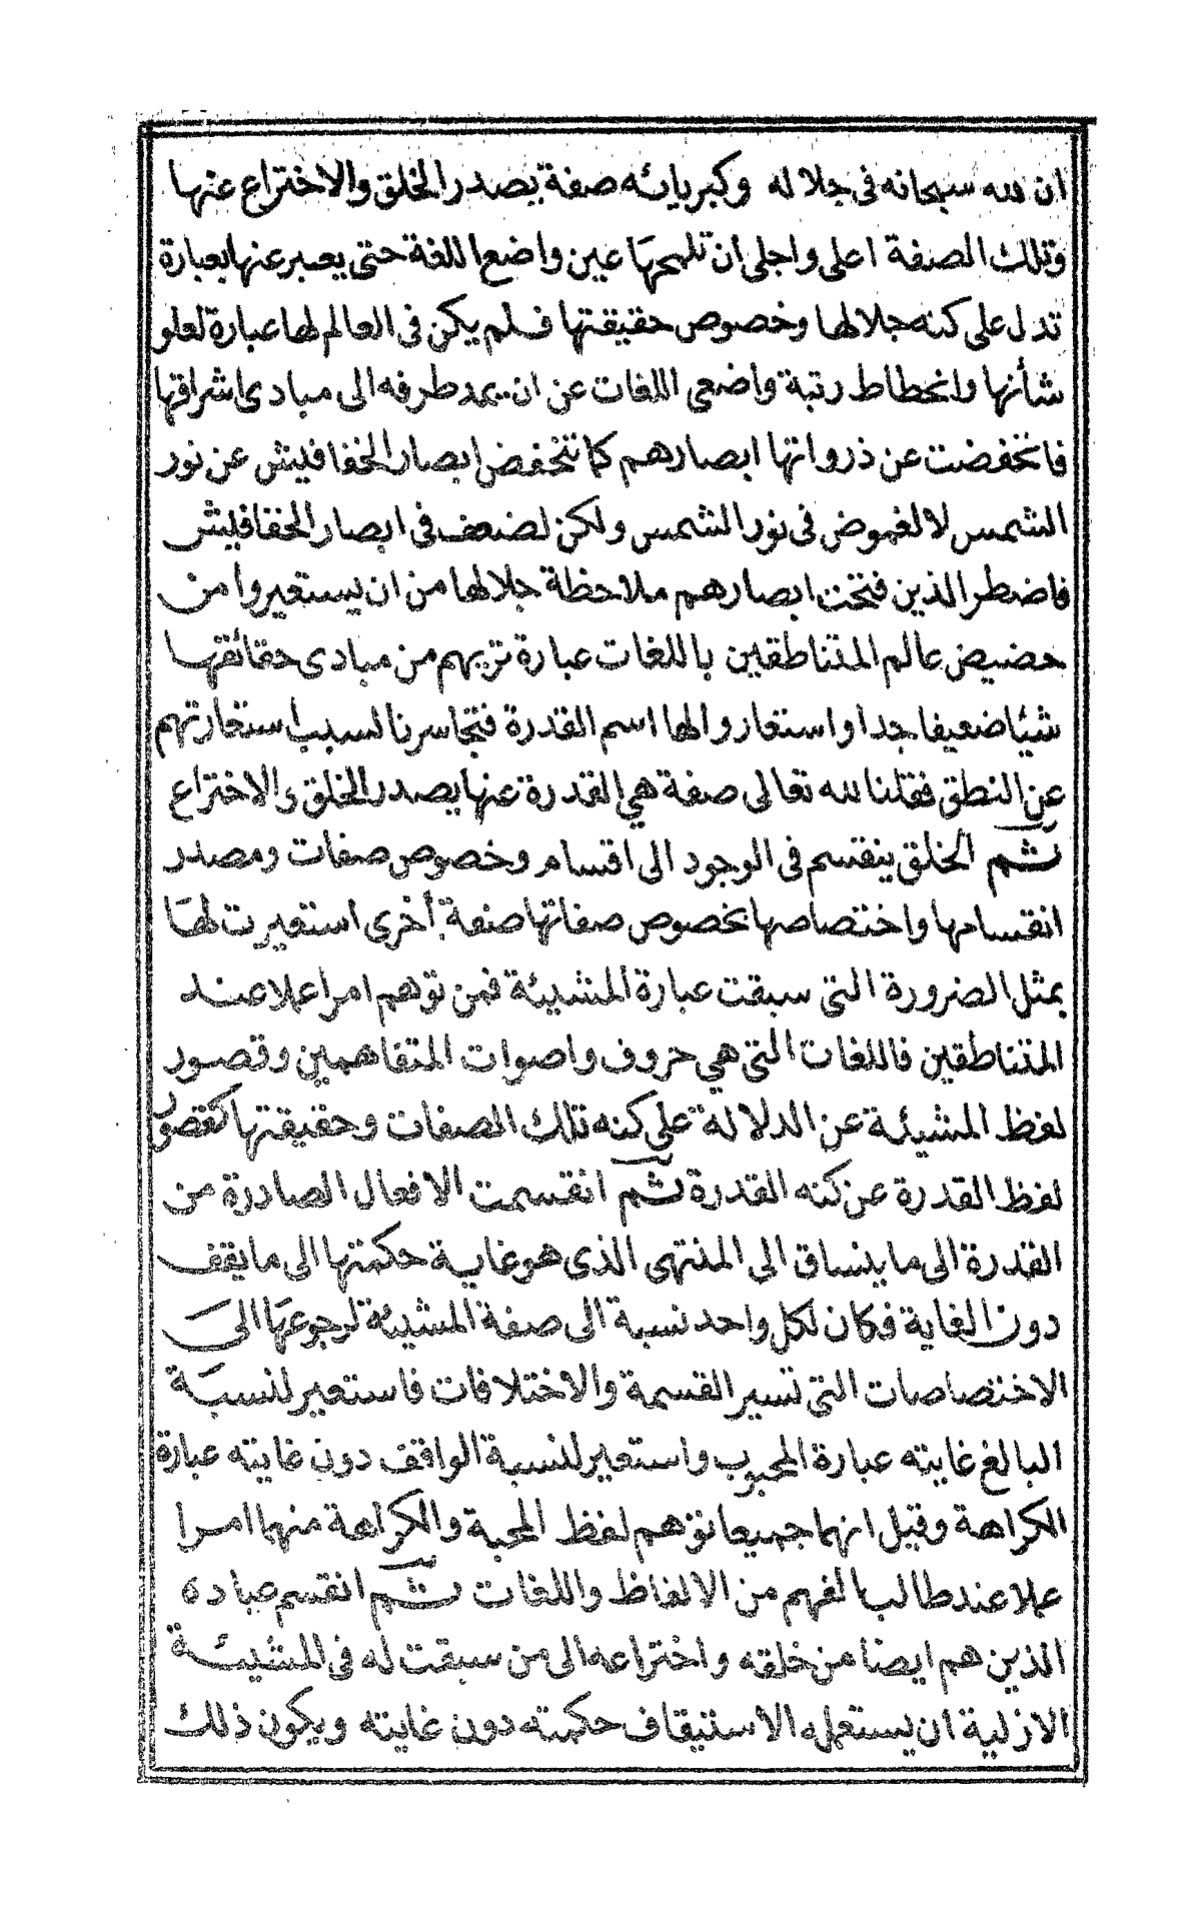 ان لله سبحانه فى جلاله وكبريائه صفة يصدر الخلق والاختراع عنها
وتلك الصفة اعلى واجلى ان تلمحها عين واضع اللغة حتى يعبر عنها بعبارة
تدل على كنه جلالها وخصوص حقيقتها فلم يكن فى العالم لها عبارة لعلو
شأنها وانحطاط رتبة واضعى اللغات عن ان يمد طرفه الى مبادى اشراقها
فانخفضت عن ذرواتها ابصارهم كما تنخفض ابصار الخفافيش عن نور
الشمس لا لغموض فى نور الشمس ولكن لضعف فى ابصار الخفافيش
فاضطر الذين فتحت ابصارهم ملاحظة جلالها من ان يستعيروا من
حضيض عالم المتناطقين باللغات عبارة تريهم من مبادى حقائقها
شيئا ضعيفا جدا واستعاروا لها اسم القدرة فتجاسرنا لسبب استعارتهم
عن النطق فقلنا لله تعالى صفة هي القدرة عنها يصدر الخلق والاختراع
ثم الخلق ينقسم فى الوجود الى اقسام وخصوص صفات ومصدر
انقسامها واختصاصها بخصوص صفاتها صفة أخرى استعيرت لها
بمثل الضرورة التى سبقت عبارة المشيئة فمن توهم امرا عملا عند
المتناطقين فاللغات التى هي حروف واصوات المتفاهمين وقصور
لفظ المشيئة عن الدلالة على كنه تلك الصفات وحقيقتها كقصور
لفظ القدرة عن كنه القدرة ثم انقسمت الافعال الصادرة من
القدرة الى ما ينساق الى المنتهى الذى هو غاية حكمتها الى ما يقف
دون الغاية فكان لكل واحد نسبة الى صفة المشيئة لرجوعها الى
الاختصاصات التى تسير القسمة والاختلافات فاستعير لنسبة
البالغ غايته عبارة المحبوب واستعير لنسبة الواقف دون غايته عبارة
الكراهة وقيل انهما جميعا توهم لفظ المحبة والكراهة منهما امرا
عملا عند طالب الفهم من الالفاظ واللغات ثم انقسم عباده
الذين هم ايضا من خلقه واختراعه الى من سبقت له فى المشيئة
الازلية ان يستعمله الاستيقاف حكمته دون غايته ويكون ذلك